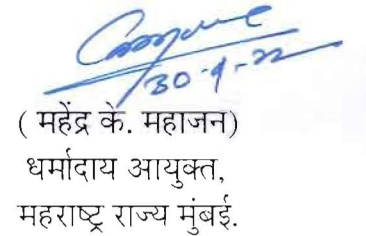 30-9-22
( महेंद्र के. महाजन)
धर्मादाय आयुक्त,
महराष्ट्र राज्य मुंबई.